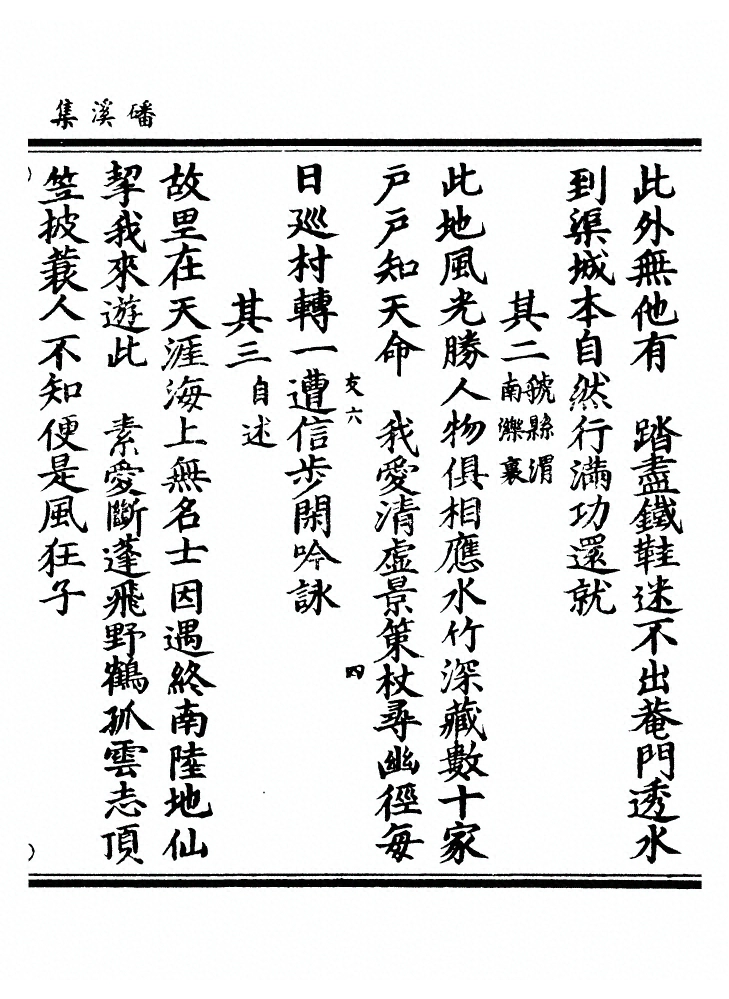 磻溪集
此外無他有　踏盡鐵鞋迷不出菴門透水
到渠城本自然行滿功還就
其二虢縣渭南濼裏
此地風光勝人物俱相應水竹深藏數十家
戶戶知天命　我愛清虛景策杖尋幽徑每
支六　四
日廵村轉一遭信步閑吟詠
其三自述
故里在天涯海上無名士因遇終南陸地仙
挈我來遊此　素愛斷蓬飛野鶴孤雲志頂
笠披蓑人不知便是風狂子